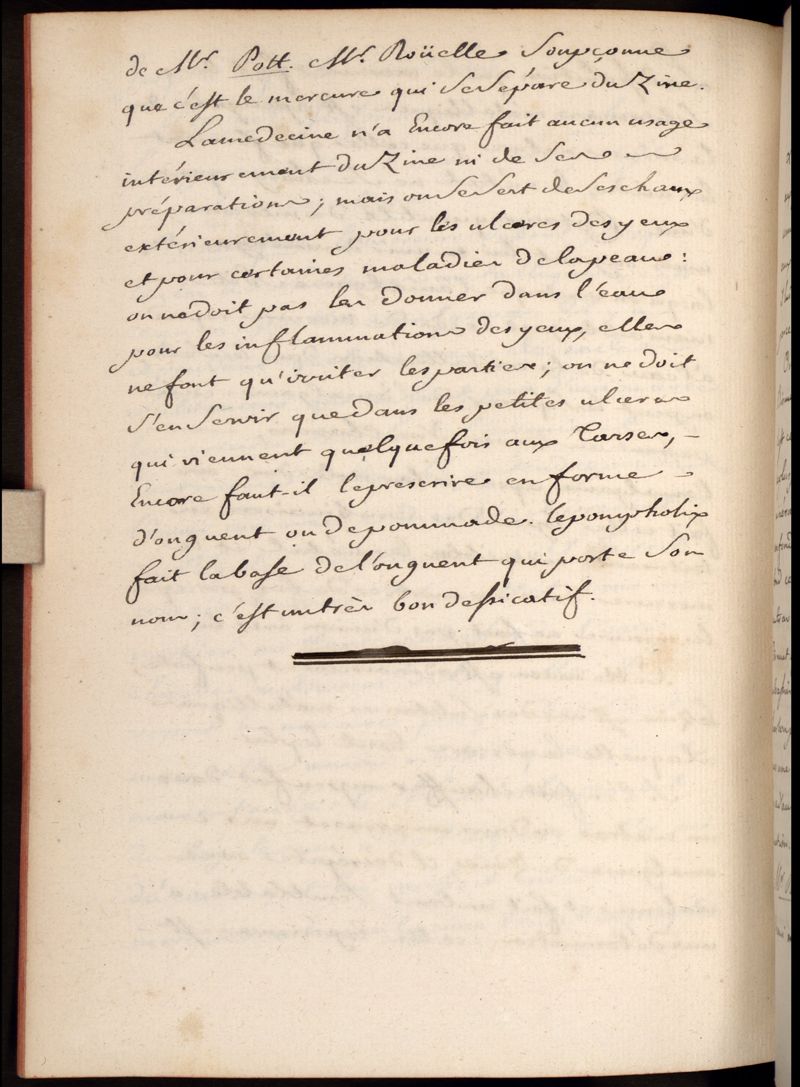 de Mr. Pott. Mr. Roüelle Soupçonne
que c'est le mercure qui Se Sépare du Zinc.
La medecine n'a Encore fait aucun usage
intérieurement du Zinc ni de Ses
préparations; mais on Se Sert de Ses chaux
extérieurement pour les ulceres des yeux
et pour certaines maladies de la peau:
on ne doit pas les donner dans l'eau
pour les inflammations des yeux, elles
ne font qu'irriter les parties; on ne doit
S'en Servir que dans les petites ulceres
qui viennent quelquefois aux Tarses, -
Encore faut-il le prescrire en forme
d'onguent ou de pommade. le pompholix
fait la base de l'onguent qui porte Son
nom; c'est un très bon dessicatif.